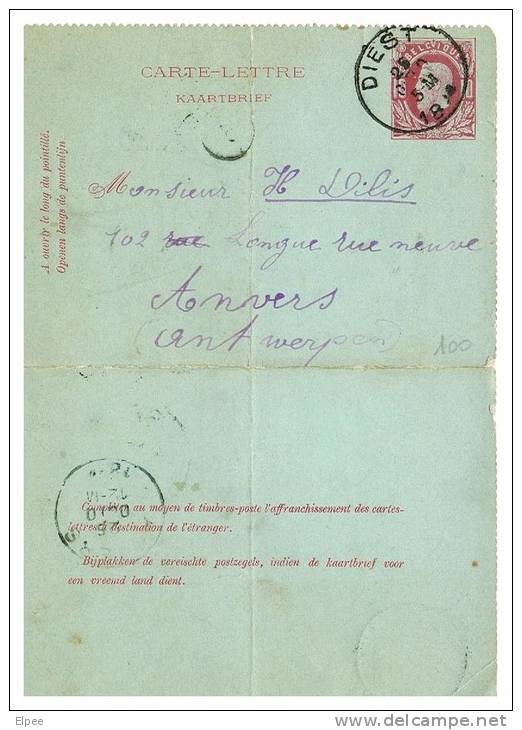 CARTE-LETTRE
KAARTBRIEF
BELGIQUE
DIEST
29
5-M
18
A ouvrir le long du pointillé.
Openen langs de puntenlijn
Monsieur H Dilis
102 rue Longue rue neuve
Anvers
(Antwerpen)
100
Compléter au moyen de timbres-poste l'affranchissement des cartes-
lettres à destination de l'étranger.
Bijplakken de vereischte postzegels, indien de kaartbrief voor
een vreemd land dient.
Elpee
www.delcampe.net